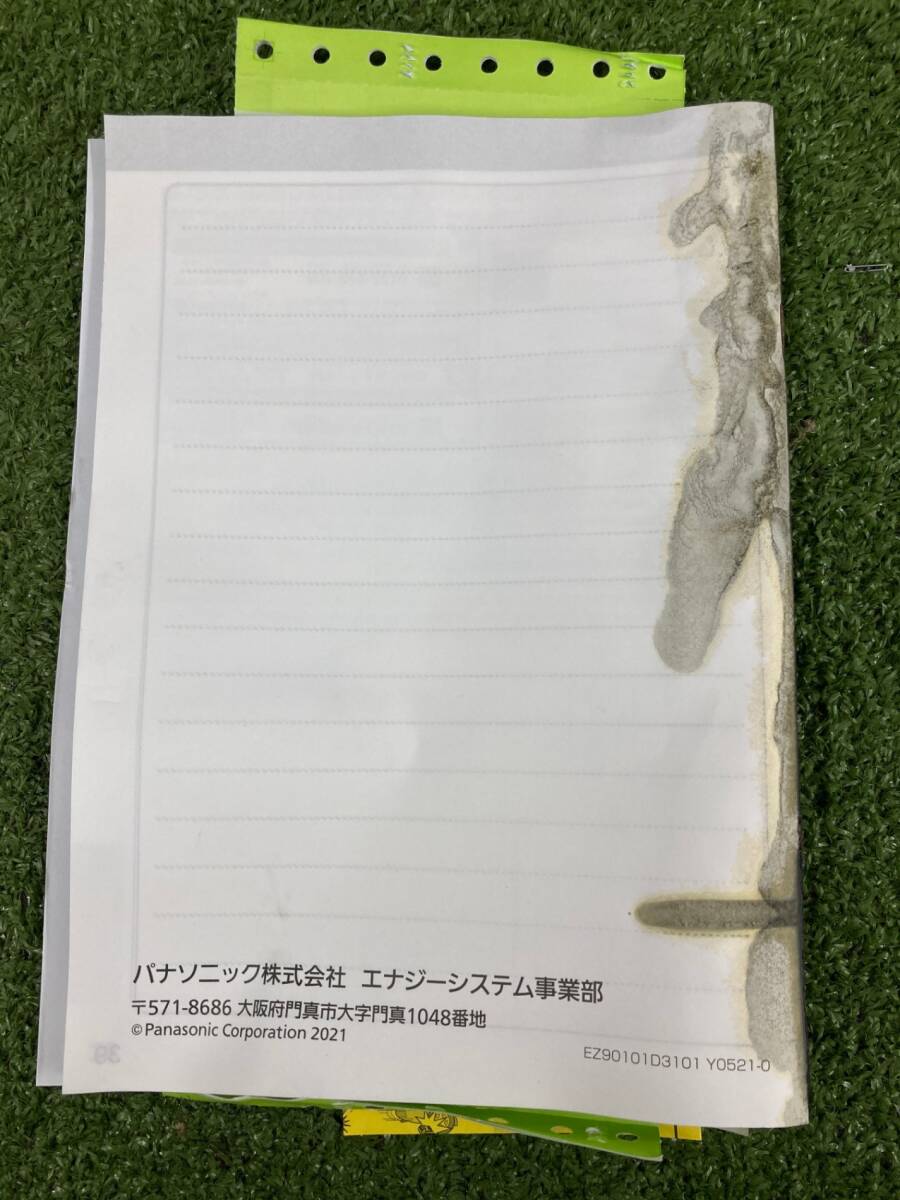 パナソニック株式会社 エナジーシステム事業部
〒571-8686 大阪府門真市大字門真1048番地
©Panasonic Corporation 2021
EZ90101D3101 Y0521-0